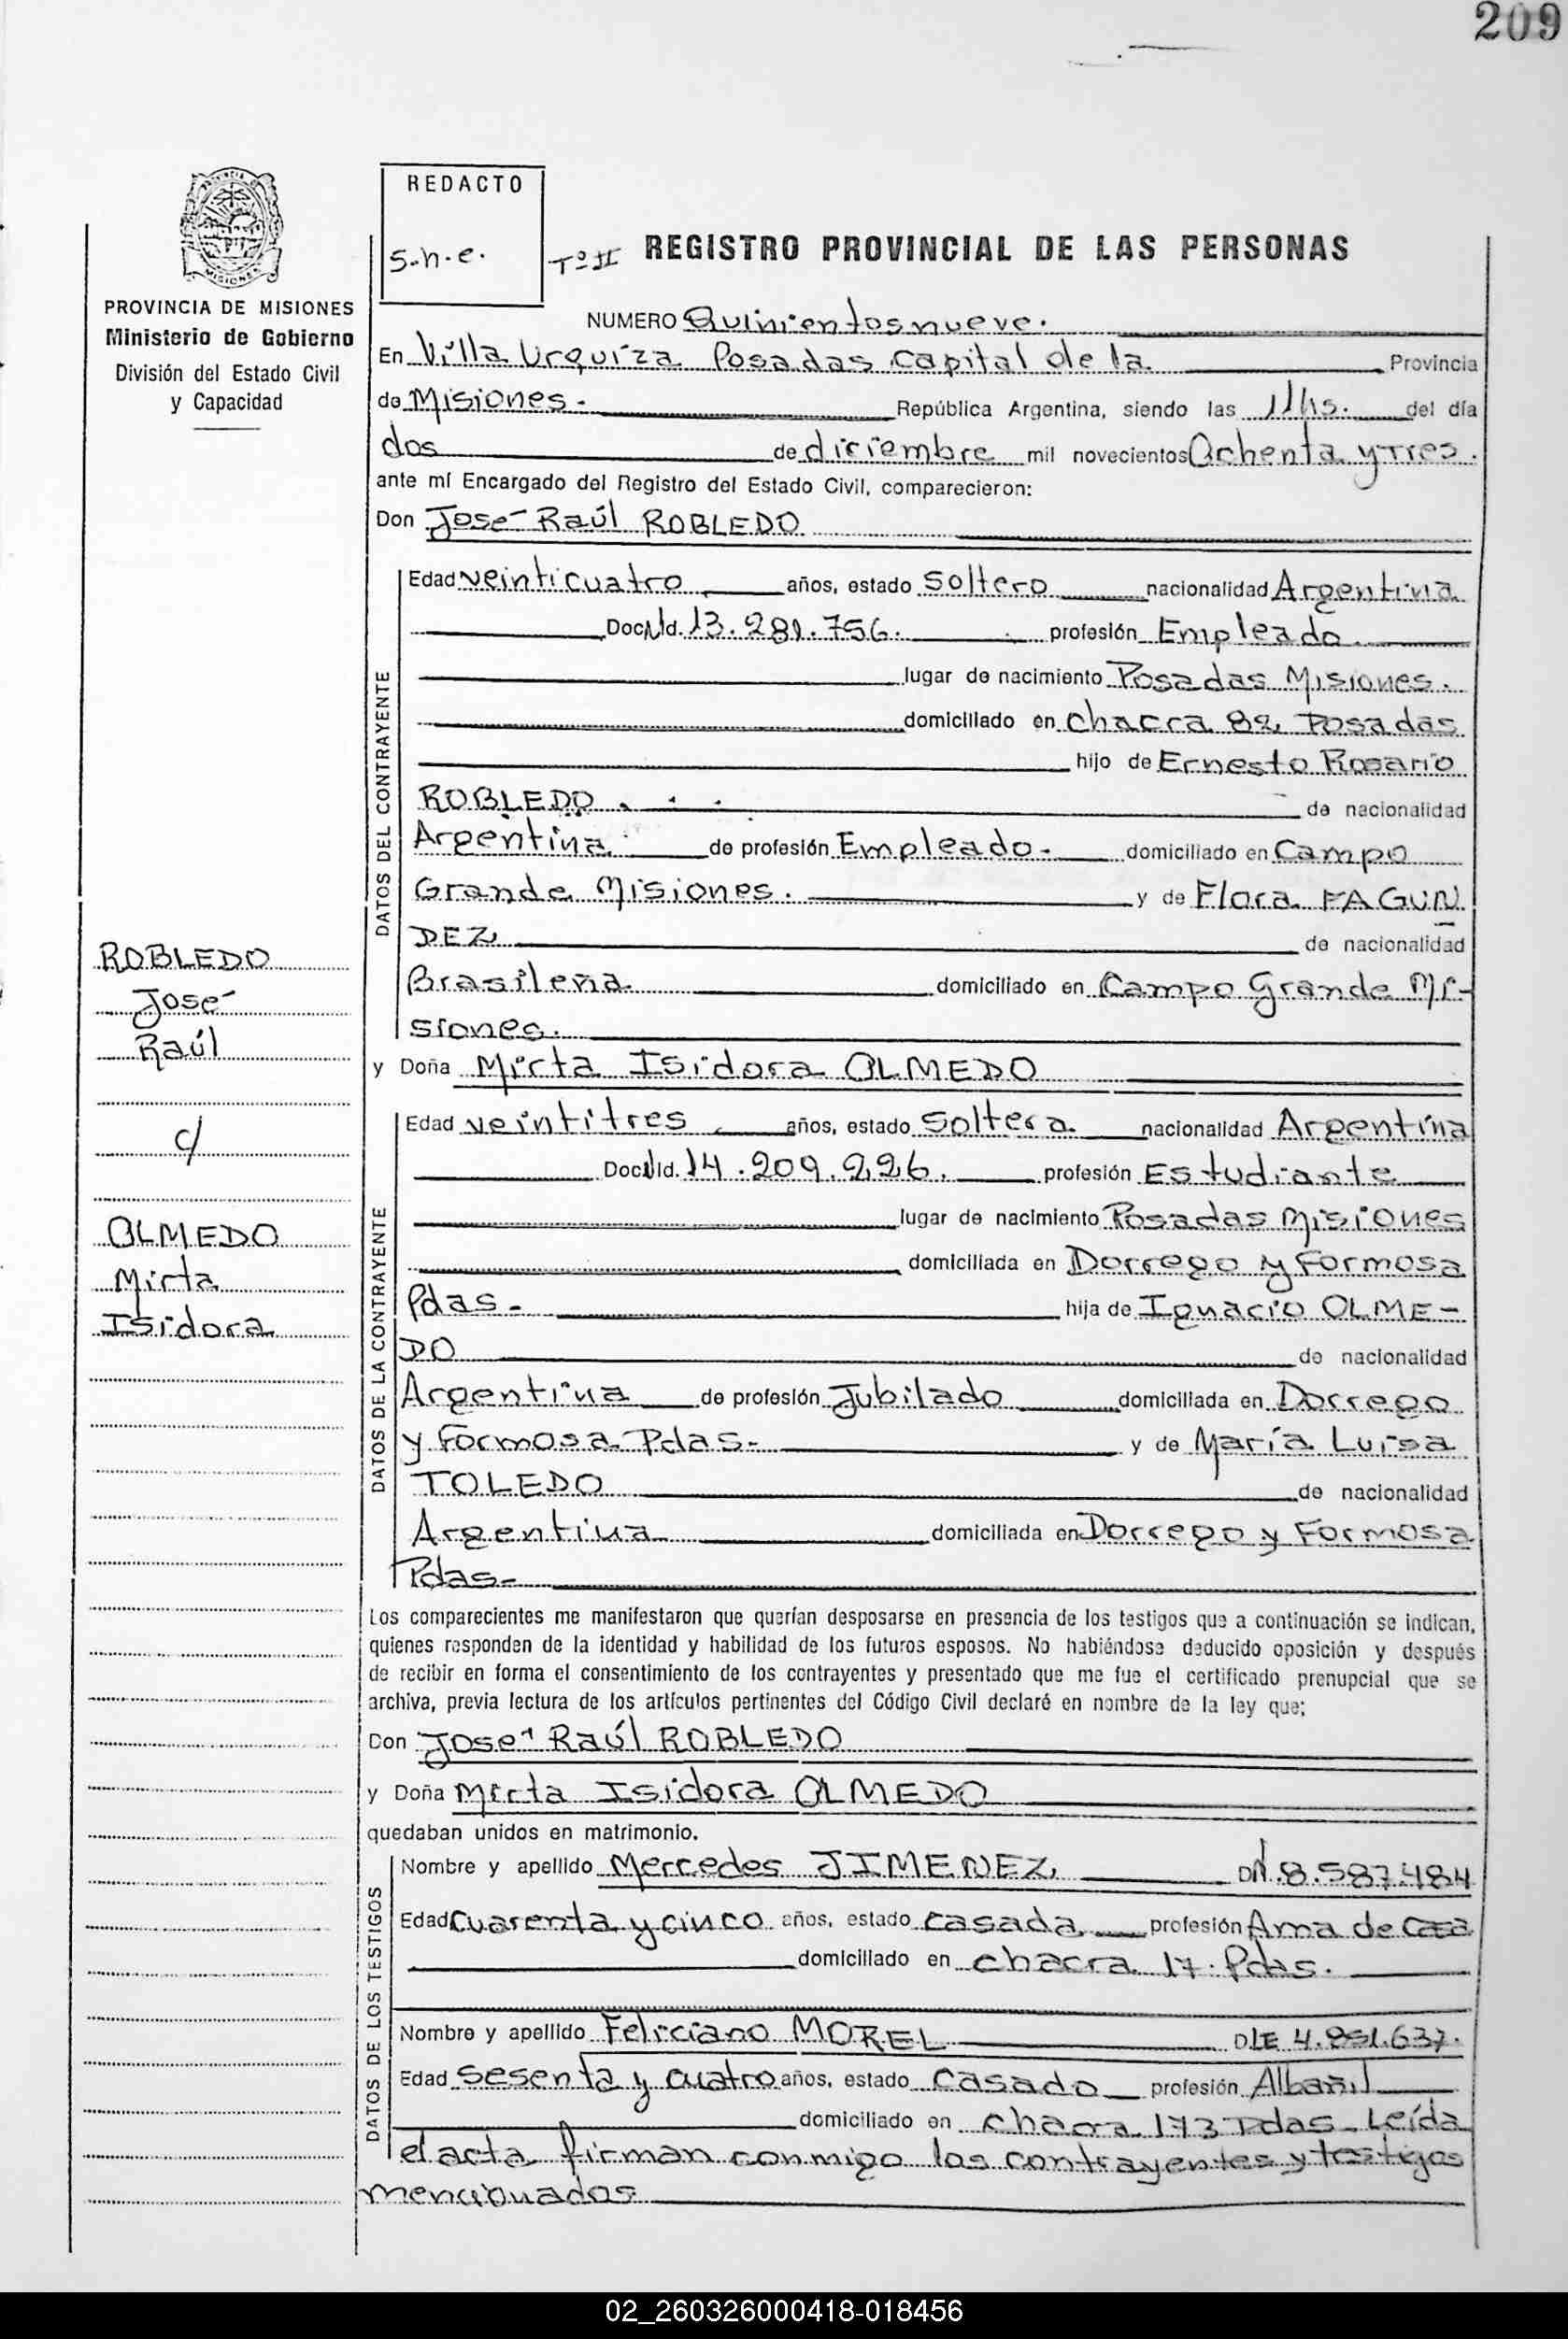 209
REDACTO
s.n.e.
Tº II REGISTRO PROVINCIAL DE LAS PERSONAS
PROVINCIA DE MISIONES
Ministerio de Gobierno
División del Estado Civil
y Capacidad
NUMERO Quinientos nueve.
En Villa Urquiza Posadas capital de la Provincia
de Misiones.- República Argentina, siendo las 11hs. del día
dos de diciembre mil novecientos Ochenta y Tres.
ante mí Encargado del Registro del Estado Civil, comparecieron:
Don José Raúl ROBLEDO
DATOS DEL CONTRAYENTE
Edad veinticuatro años, estado Soltero nacionalidad Argentina
Doc. Nd. 13.281.756. profesión Empleado.
lugar de nacimiento Posadas Misiones.
domiciliado en chacra 82 Posadas
hijo de Ernesto Rosario
ROBLEDO. de nacionalidad
Argentina de profesión Empleado- domiciliado en Campo
Grande Misiones. y de Flora FAGUN
DEZ de nacionalidad
Brasileña domiciliado en Campo Grande Mi-
siones.
ROBLEDO
José
Raúl
c/
OLMEDO
Mirta
Isidora
y Doña Mirta Isidora OLMEDO
DATOS DE LA CONTRAYENTE
Edad veintitres años, estado Soltera nacionalidad Argentina
Doc. Nd. 14.209.226. profesión Estudiante
lugar de nacimiento Posadas Misiones
domiciliada en Dorrego y Formosa
Pdas- hija de Ignacio OLME-
DO de nacionalidad
Argentina de profesión Jubilado domiciliada en Dorrego
y Formosa Pdas- y de María Luisa
TOLEDO de nacionalidad
Argentina domiciliada en Dorrego y Formosa
Pdas-
Los comparecientes me manifestaron que querían desposarse en presencia de los testigos que a continuación se indican,
quienes responden de la identidad y habilidad de los futuros esposos. No habiéndose deducido oposición y después
de recibir en forma el consentimiento de los contrayentes y presentado que me fue el certificado prenupcial que se
archiva, previa lectura de los artículos pertinentes del Código Civil declaré en nombre de la ley que;
Don José Raúl ROBLEDO
y Doña Mirta Isidora OLMEDO
quedaban unidos en matrimonio.
DATOS DE LOS TESTIGOS
Nombre y apellido Mercedes JIMENEZ 8.587.484
Edad Cuarenta y cinco años, estado casada profesión Ama de Casa
domiciliado en chacra 17. Pdas.
Nombre y apellido Feliciano MOREL DLE 4.851.637.
Edad Sesenta y cuatro años, estado Casado profesión Albañil
domiciliado en chacra 173 Pdas- Leída
el acta firman conmigo los contrayentes y testigos
mencionados
02_260326000418-018456